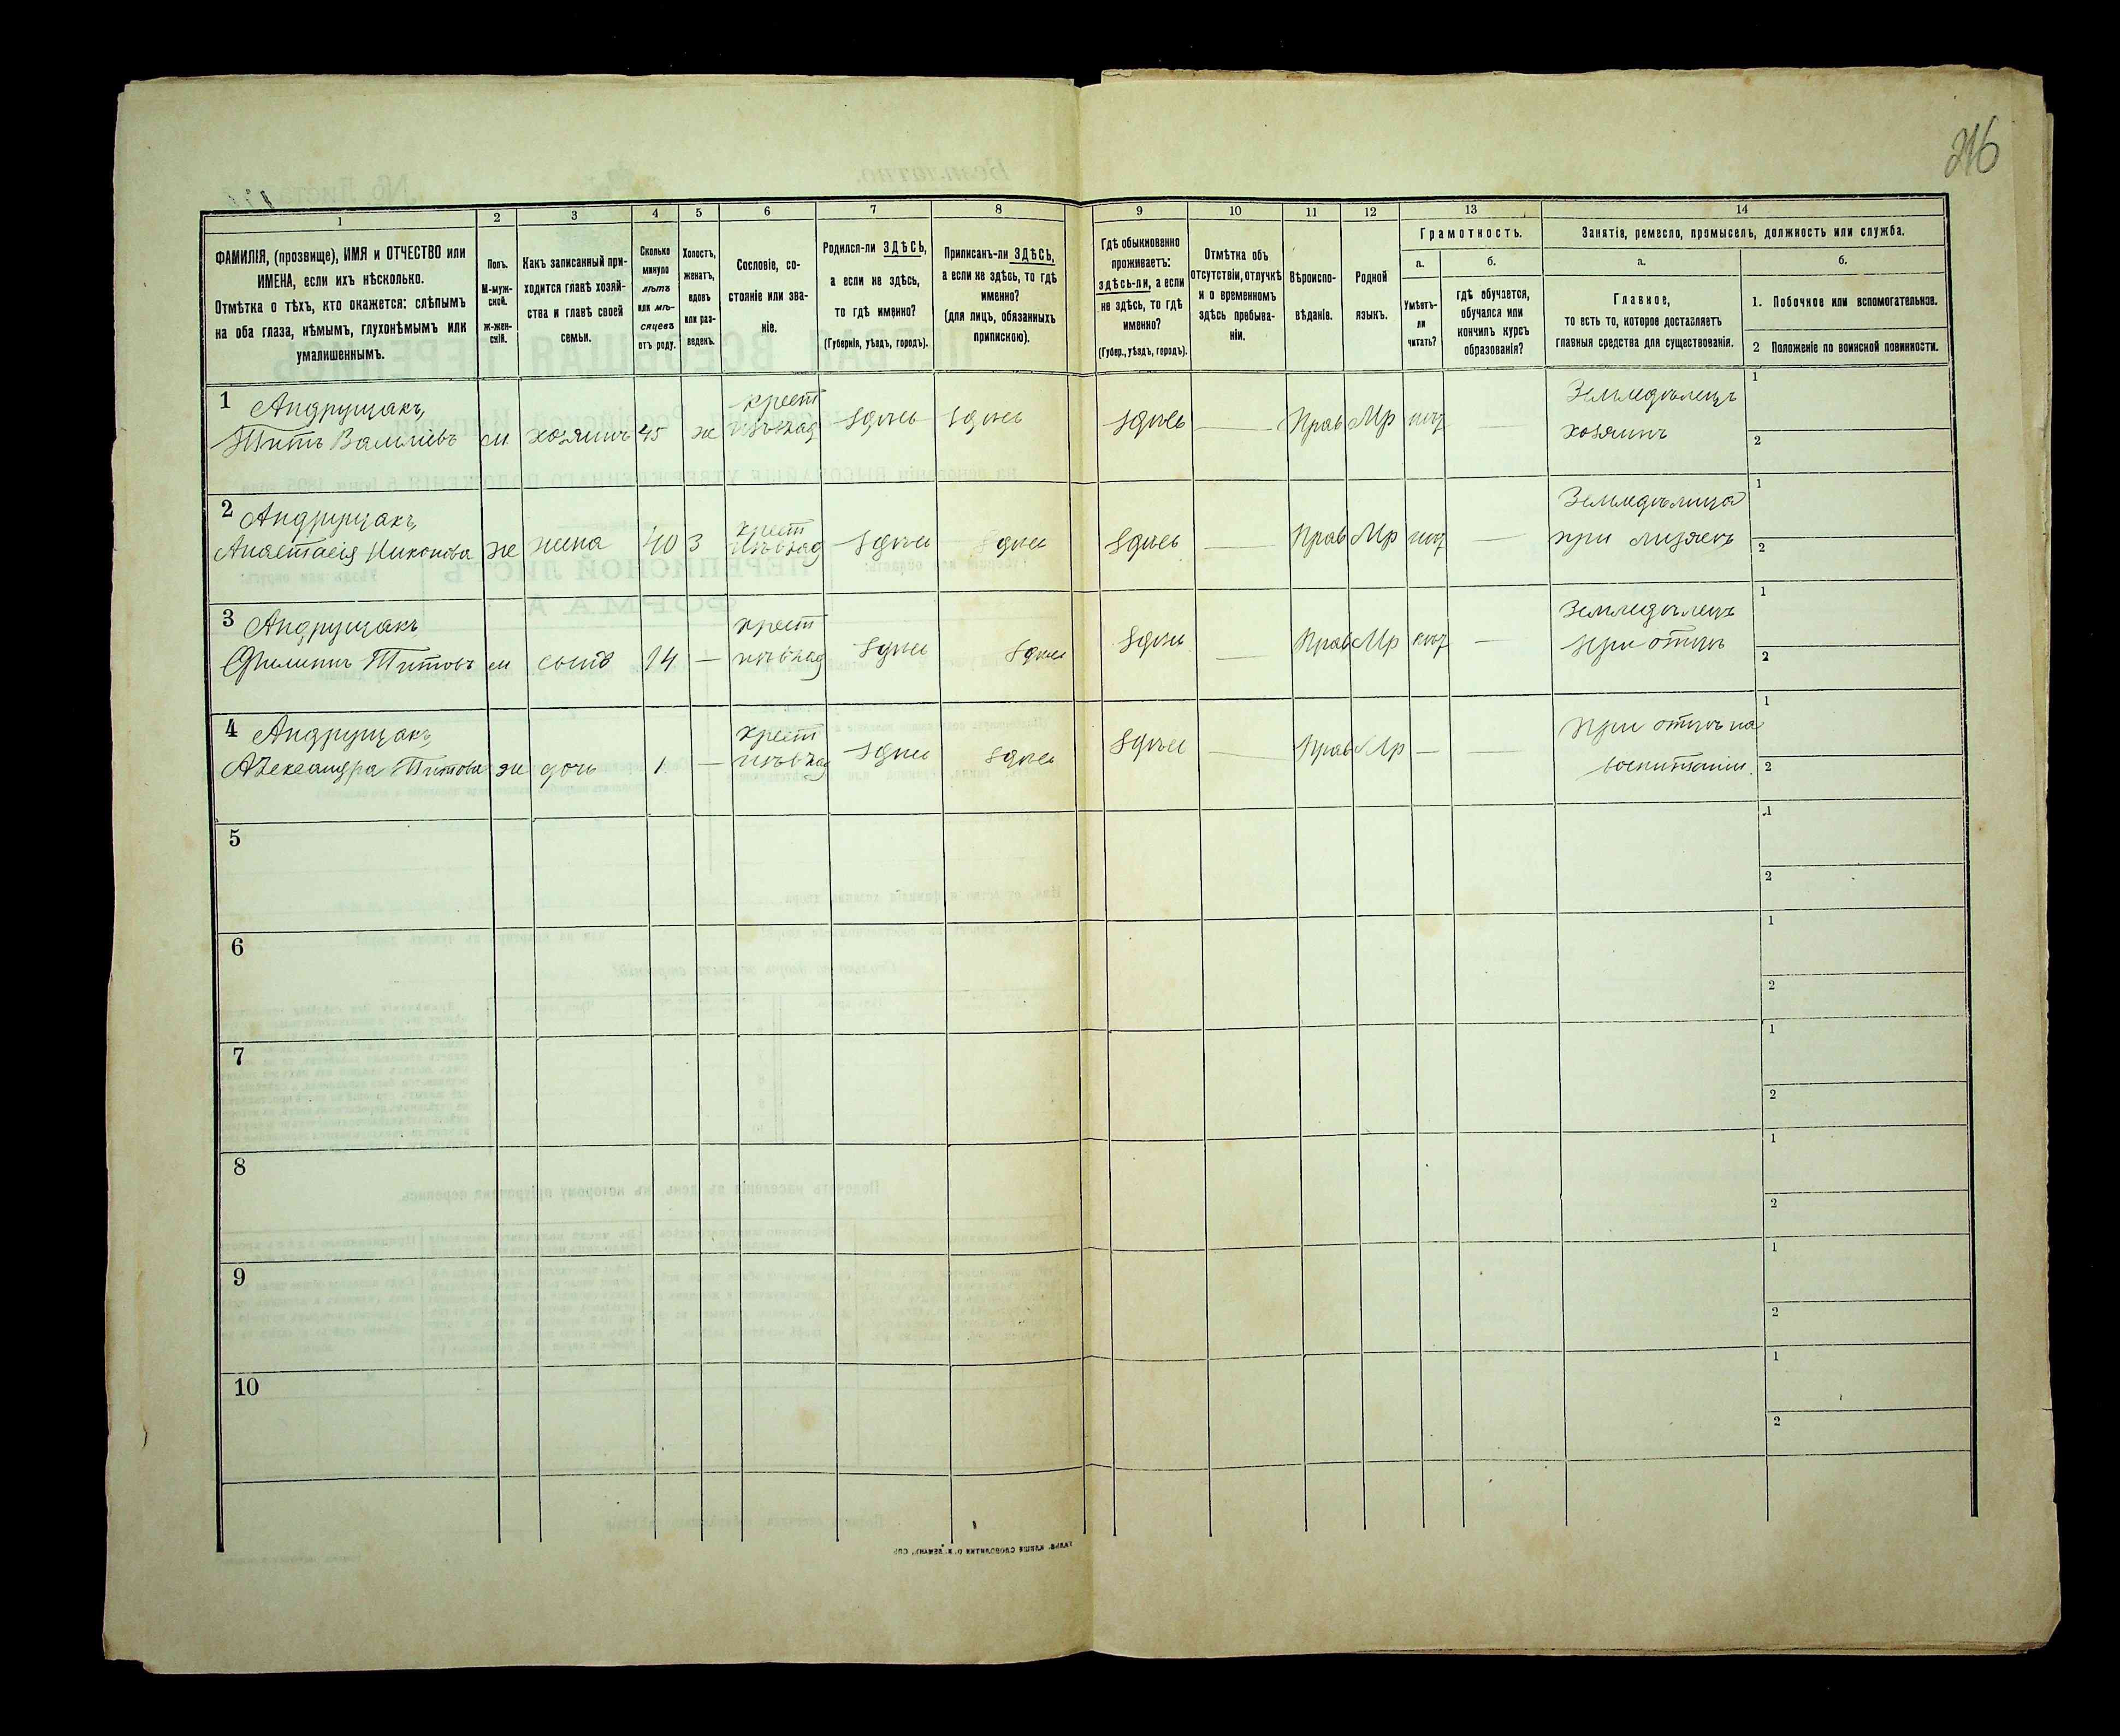 216
1
2
3
4
5
6
7
8
9
10
11
12
13
14
ФАМИЛІЯ, (прозвище), ИМЯ и ОТЧЕСТВО или
ИМЕНА, если ихъ нѣсколько.
Отмѣтка о тѣхъ, кто окажется: слѣпымъ
на оба глаза, нѣмымъ, глухонѣмымъ или
умалишеннымъ.
Полъ.
М-муж-
ской.
ж-жен-
скій.
Какъ записанный при-
ходится главѣ хозяй-
ства и главѣ своей
семьи.
Сколько
минуло
лѣтъ
или мѣ-
сяцевъ
отъ роду.
Холостъ,
женатъ,
вдовъ
или раз-
веденъ.
Сословіе, со-
стояніе или зва-
ніе.
Родился-ли ЗДѢСЬ,
а если не здѣсь,
то гдѣ именно?
(Губернія, уѣздъ, городъ).
Приписанъ-ли ЗДѢСЬ,
а если не здѣсь, то гдѣ
именно?
(для лицъ, обязанныхъ
припискою).
Гдѣ обыкновенно
проживаетъ:
здѣсь-ли, а если
не здѣсь, то гдѣ
именно?
(Губер., уѣздъ, городъ).
Отмѣтка объ
отсутствіи, отлучкѣ
и о временномъ
здѣсь пребыва-
ніи.
Вѣроиспо-
вѣданіе.
Родной
языкъ.
Грамотность.
а.
Умѣетъ-
ли
читать?
б.
гдѣ обучается,
обучался или
кончилъ курсъ
образованія?
Занятіе, ремесло, промыселъ, должность или служба.
а.
Главное,
то есть то, которое доставляетъ
главныя средства для существованія.
б.
1. Побочное или вспомогательное.
2 Положеніе по воинской повинности.
1 Андрущакъ,
Титъ Васильевъ м хозяинъ 45 ж крест
изъ влад здѣсь здѣсь здѣсь — Прав Мр нѣт — Земледѣлецъ
хозяинъ
1
2
2 Андрущакъ,
Анастасія Никонова ж жена 40 з крест
изъ влад здѣсь здѣсь здѣсь — Прав Мр нѣт — Земледѣлица
при мужѣ
1
2
3 Андрущакъ
Филиппъ Титовъ м сынъ 14 — крест
изъ влад здѣсь здѣсь здѣсь — Прав Мр нѣт — Земледѣлецъ
при отцѣ
1
2
4 Андрущакъ,
Александра Титова ж дочь 1 — крест
изъ влад здѣсь здѣсь здѣсь — Прав Мр — — При отцѣ на
воспитаніи.
1
2
5
1
2
6
1
2
7
1
2
8
1
2
9
1
2
10
1
2